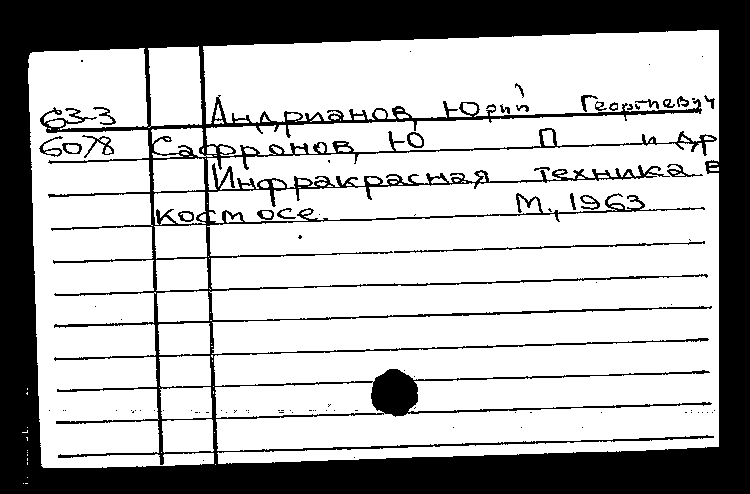 63-3 Андрианов, Юрий Георгиевич
6078 Сафронов, Ю П и др
Инфракрасная техника в
космосе. М., 1963